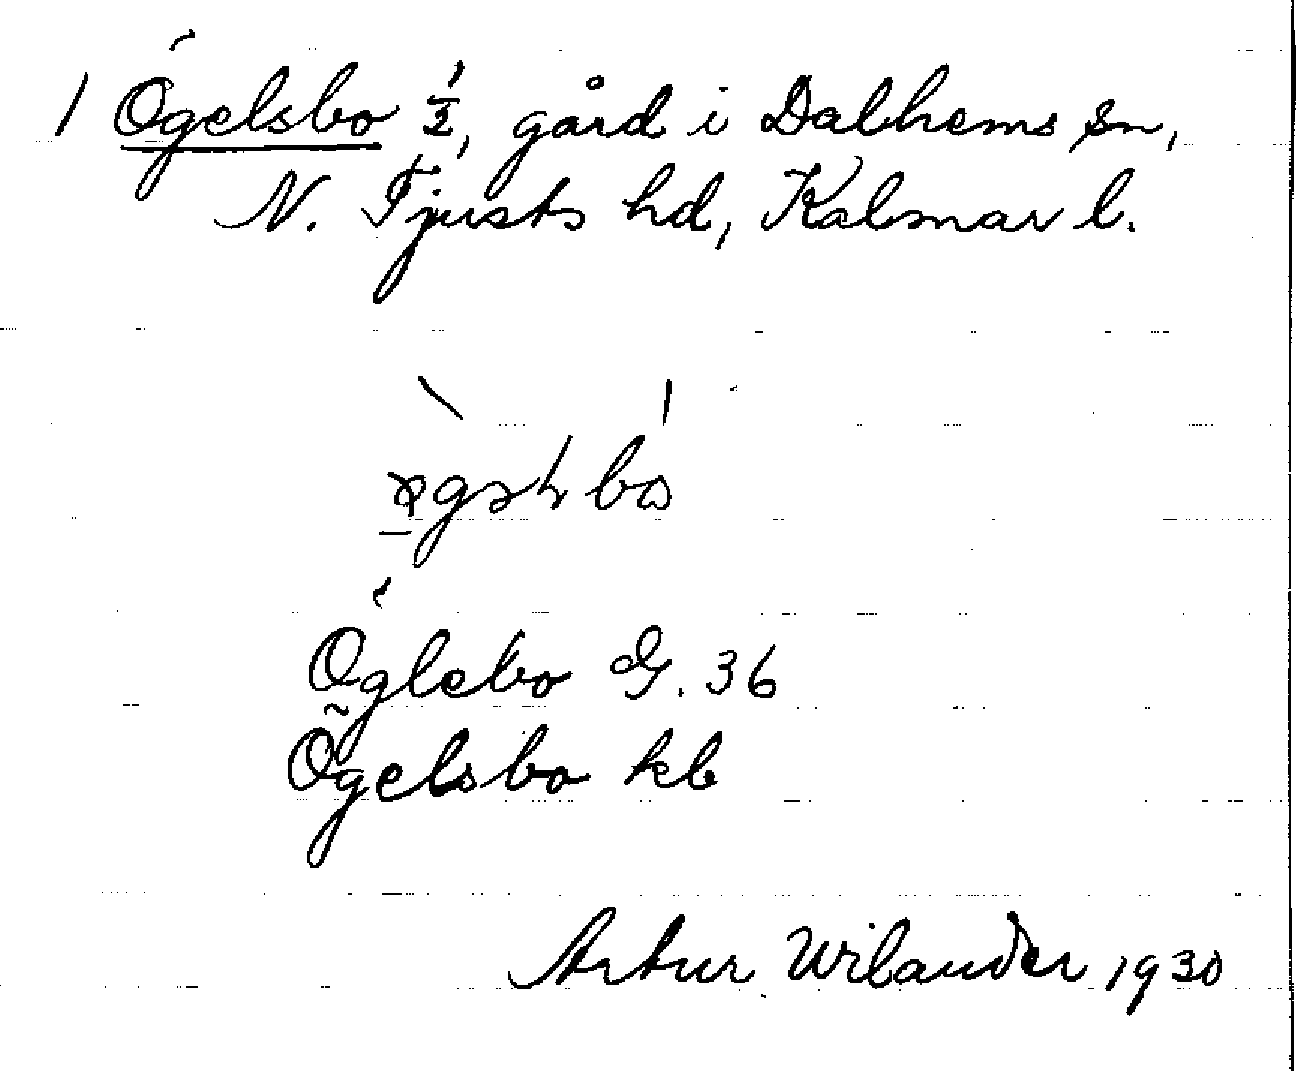 1 Ögelsbo 1/2, gård i Dalhems sn,
N. Tjusts hd, Kalmar l.
Öglebo G. 36
Ögelsbo kb
Artur Wilander 1930